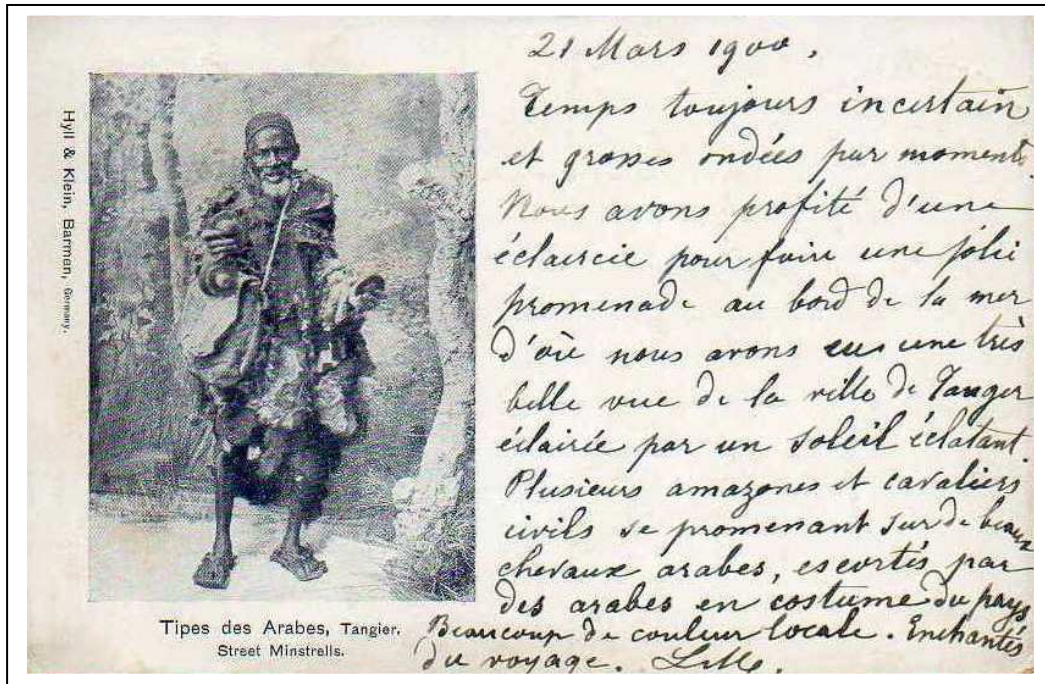 Hyll & Klein, Barmen, Germany.
Tipes des Arabes, Tangier.
Street Minstrells.
21 Mars 1900.
Temps toujours incertain
et grosses ondées par moments.
Nous avons profité d'une
éclaircie pour faire une jolie
promenade au bord de la mer
d'où nous avons eu une très
belle vue de la ville de Tanger
éclairée par un soleil éclatant.
Plusieurs amazones et cavaliers
civils se promenant sur de beaux
chevaux arabes, escortés par
des arabes en costume du pays
Beaucoup de couleur locale. Enchantés
du voyage.